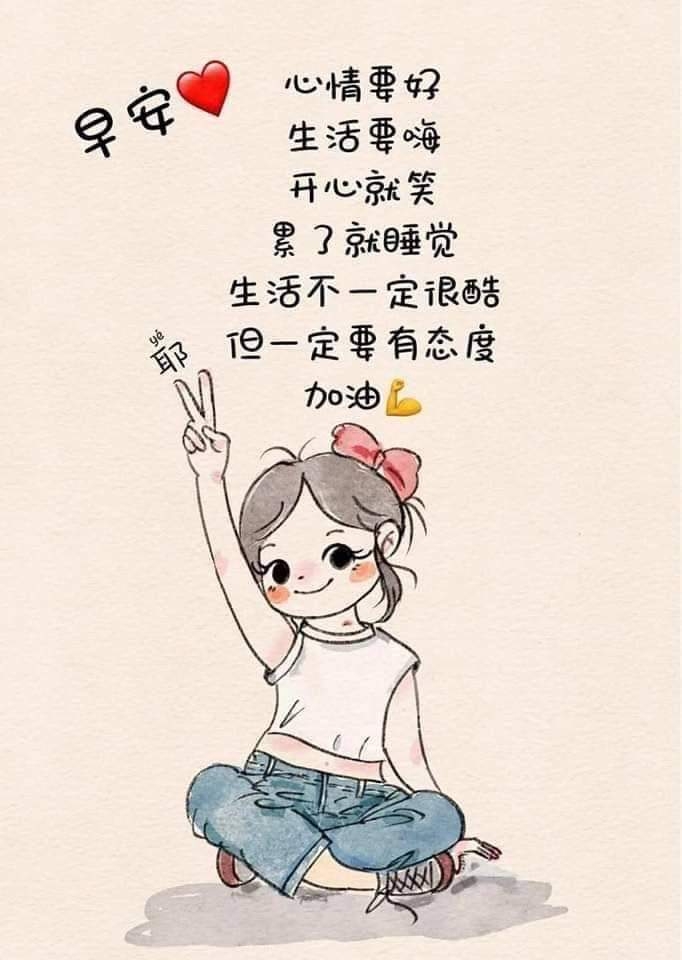 早安❤️
心情要好
生活要嗨
开心就笑
累了就睡觉
生活不一定很酷
但一定要有态度
加油💪
yé
耶